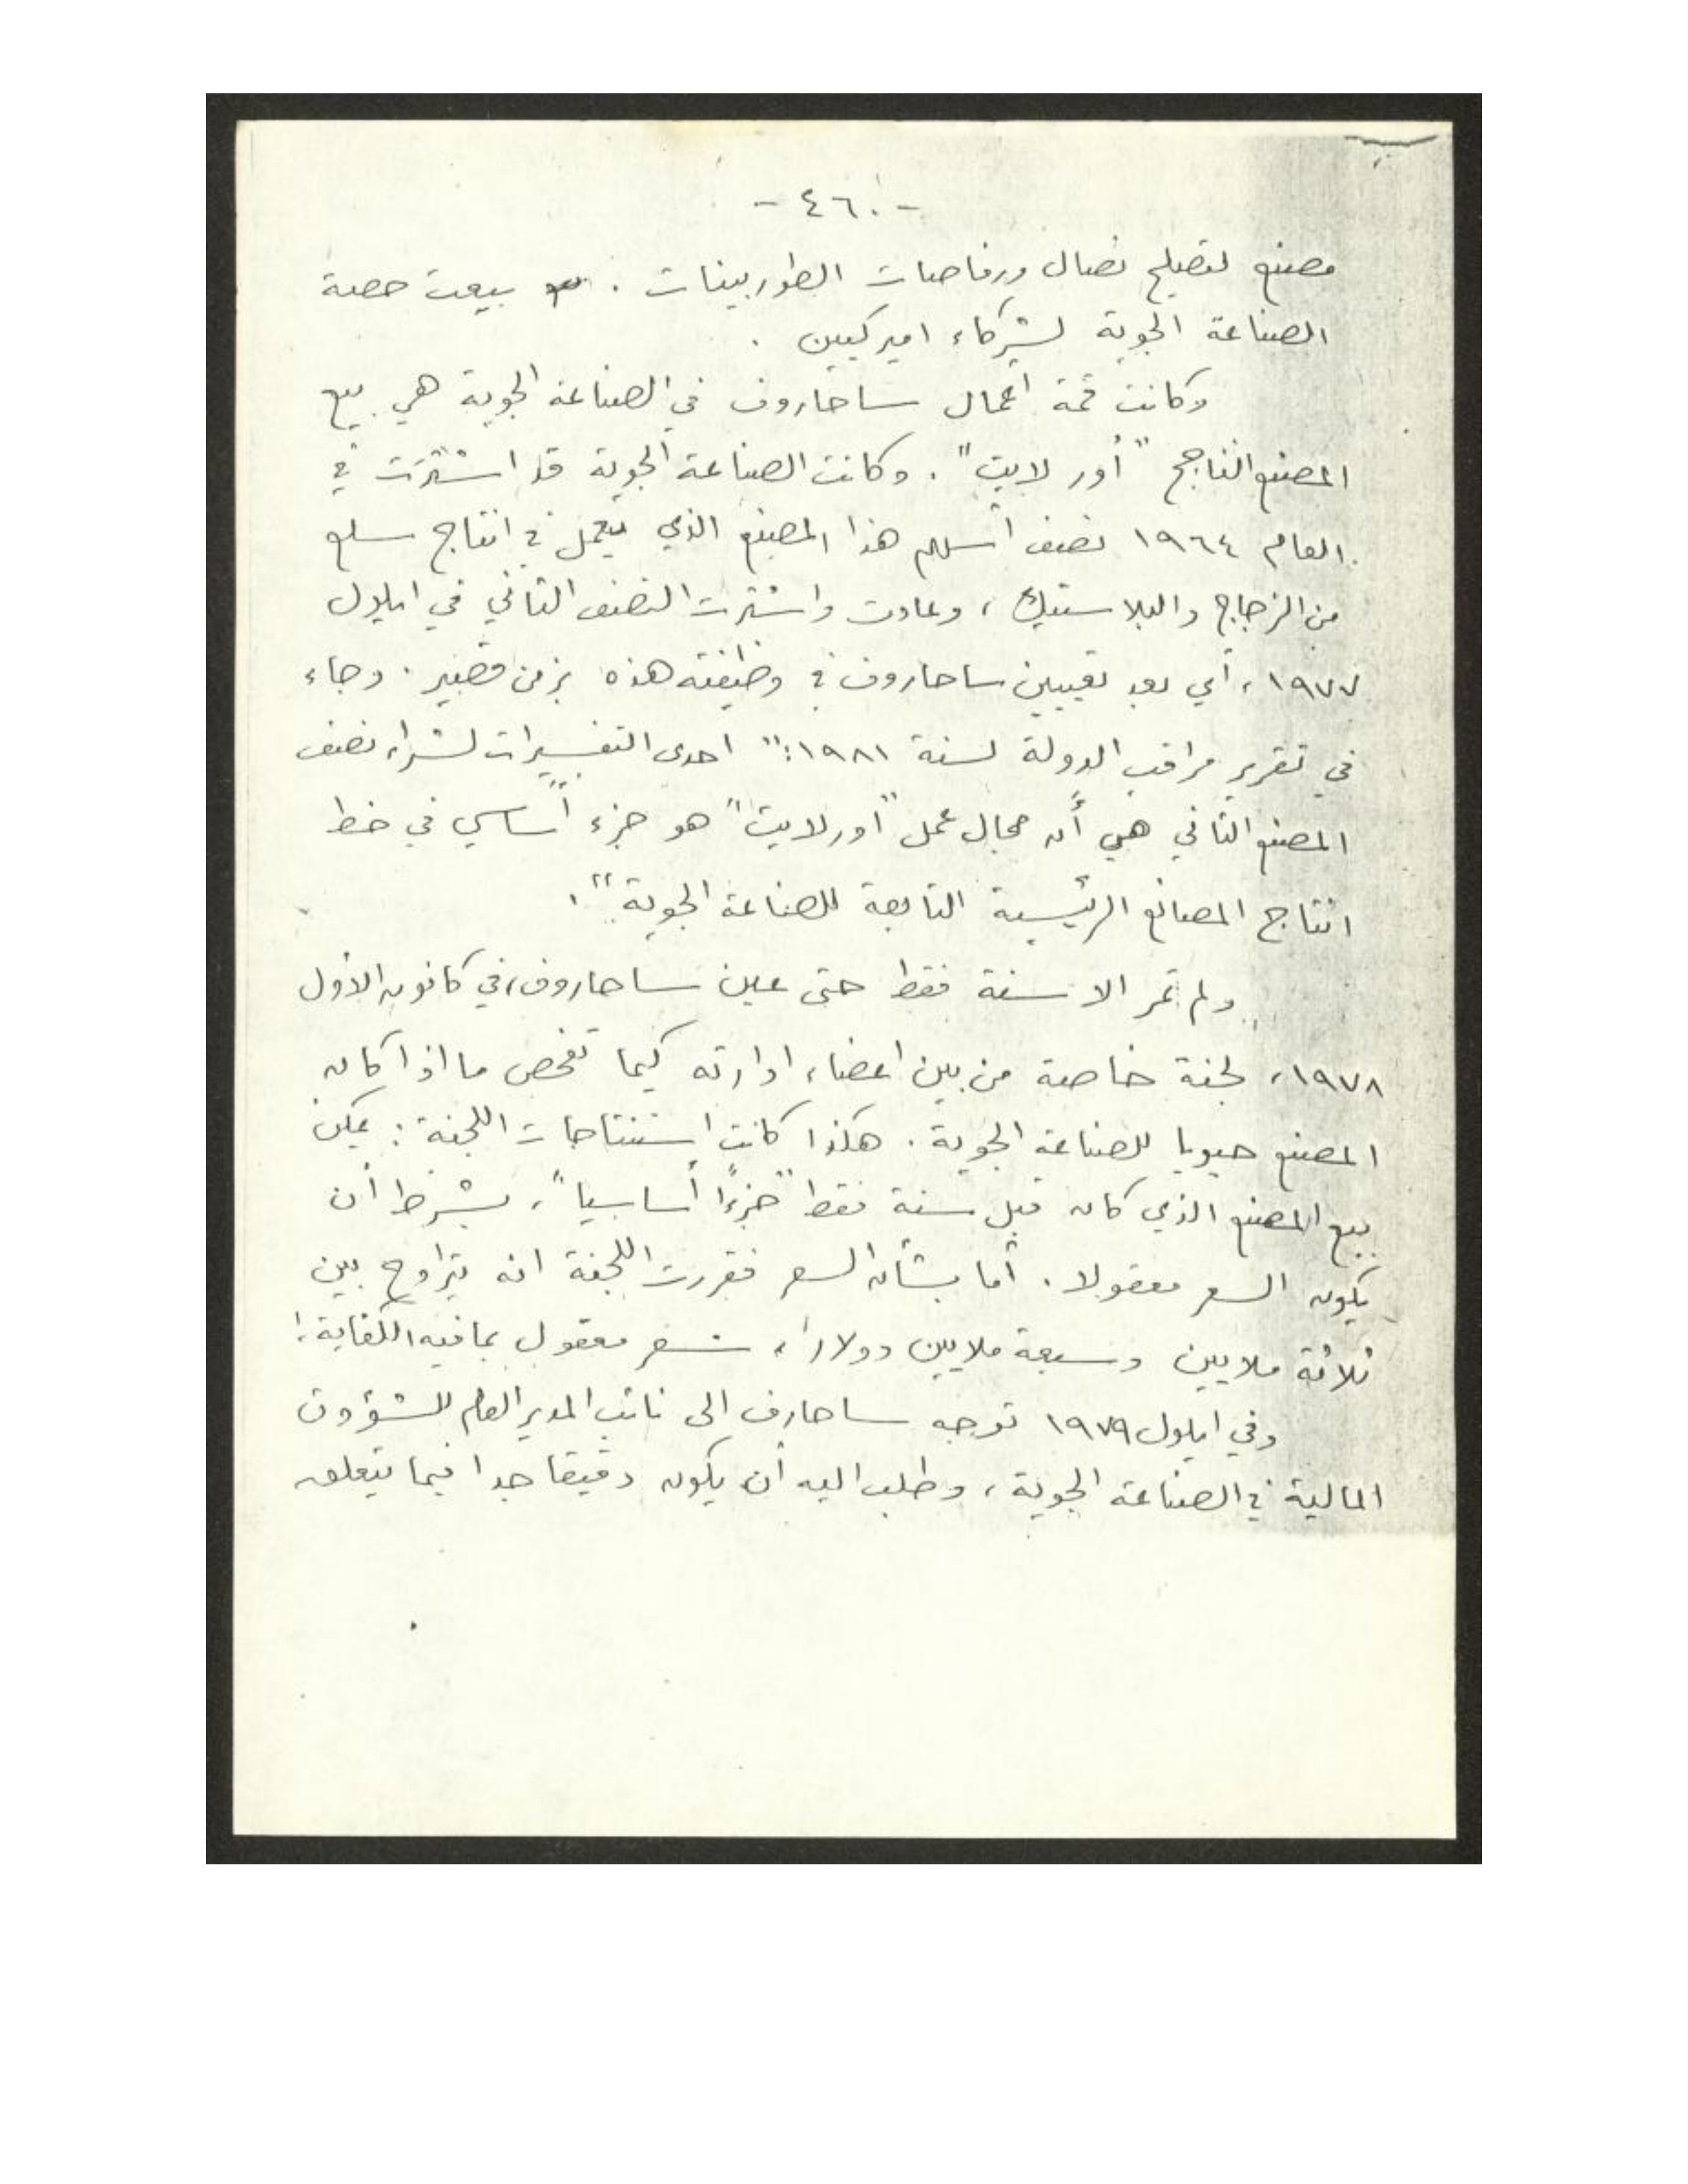 - ٤٦٠ -
مصنع لتصليح نصال ورفاصات الطوربينات . بيعت حصة
الصناعة الجوية لشركاء اميركيين .
وكانت قمة أعمال ساحاروف في الصناعة الجوية هي بيع
المصنع الناجح "أور لايت" . وكانت الصناعة الجوية قد اشترت في
العام ١٩٦٤ نصف أسهم هذا المصنع الذي يعمل في انتاج سلع
من الزجاج والبلاستيك ، وعادت واشترت النصف الثاني في ايلول
١٩٧٧ ، أي بعد تعيين ساحاروف في وظيفته هذه بزمن قصير . وجاء
في تقرير مراقب الدولة لسنة ١٩٨١ : " احدى التفسيرات لشراء نصف
المصنع الثاني هي أن مجال عمل "أورلايت" هو جزء أساسي في خط
انتاج المصانع الرئيسية التابعة للصناعة الجوية " .
ولم تمر الا سنة فقط حتى عين ساحاروف ، في كانون الأول
١٩٧٨ ، لجنة خاصة من بين اعضاء ادارته كيما تفحص ما اذا كان
المصنع حيويا للصناعة الجوية . هكذا كانت استنتاجات اللجنة : يمكن
بيع المصنع الذي كان قبل سنة فقط "جزءًا أساسيا" ، بشرط أن
يكون السعر معقولا . أما بشأن السعر فقررت اللجنة انه يتراوح بين
ثلاثة ملايين وسبعة ملايين دولارا ، سعر معقول بما فيه الكفاية !
وفي ايلول ١٩٧٩ توجه ساحارف الى نائب المدير العام للشؤون
المالية في الصناعة الجوية ، وطلب اليه أن يكون دقيقا جدا فيما يتعلق